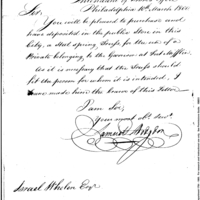 Philadelphia 10th March 1800
Sir,
You will be pleased to purchase and
have deposited in the public Store in this
City, a Steel spring Truss for the use of a
Private belonging to the Garrison at Fort Mifflin.
As it is necessary that the Truss should
fit the person for whom it is intended, I
have made him the bearer of this Letter.
I am Sir,
Your most Ob. Serv.
Samuel Hodgdon
Israel Whelen Esqr.